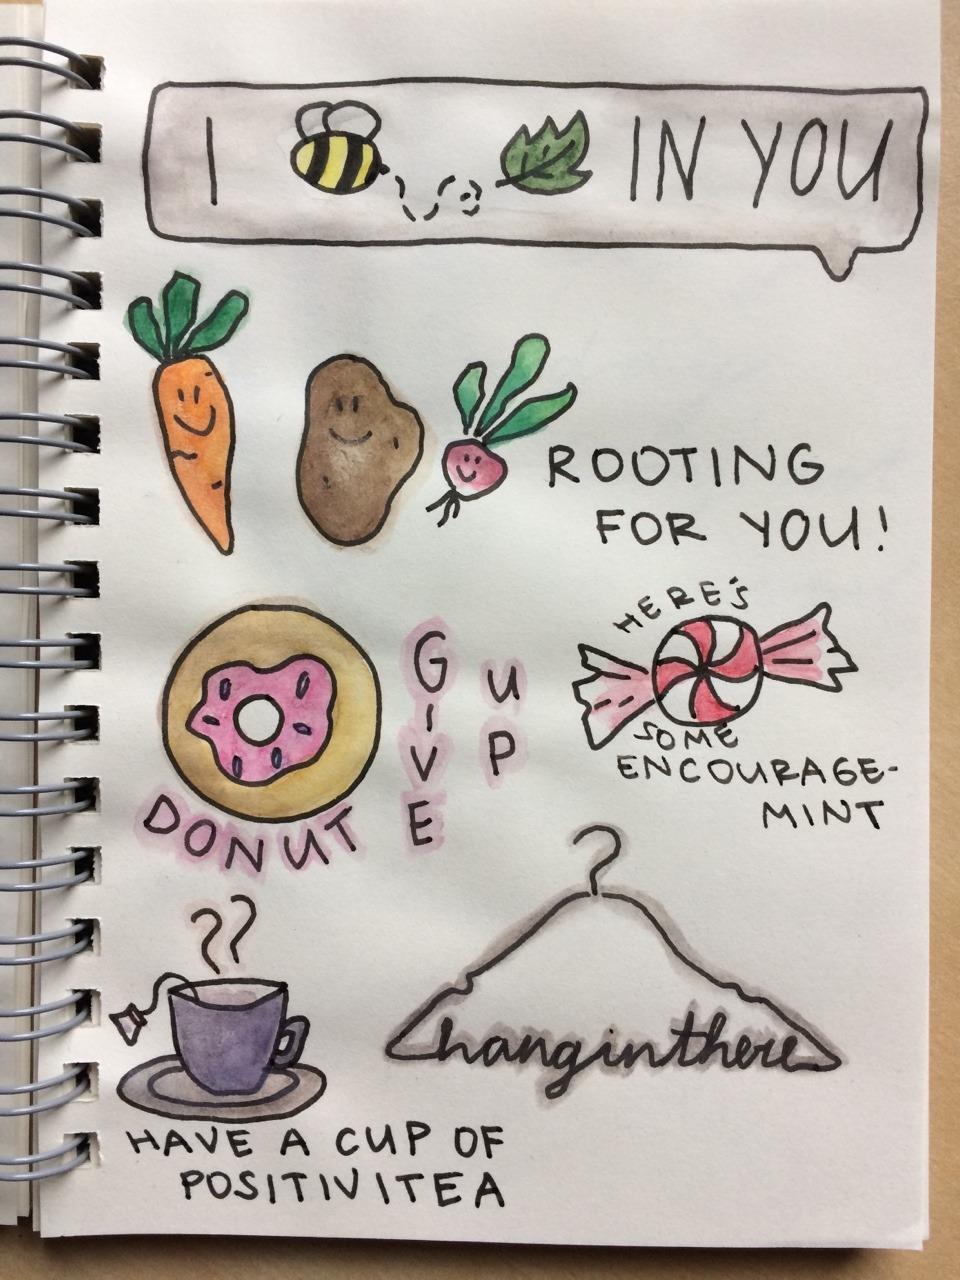 I IN YOU
ROOTING
FOR YOU!
DONUT
GIVE
UP
HERE'S
SOME
ENCOURAGE-
MINT
hang in there
HAVE A CUP OF
POSITIVITEA